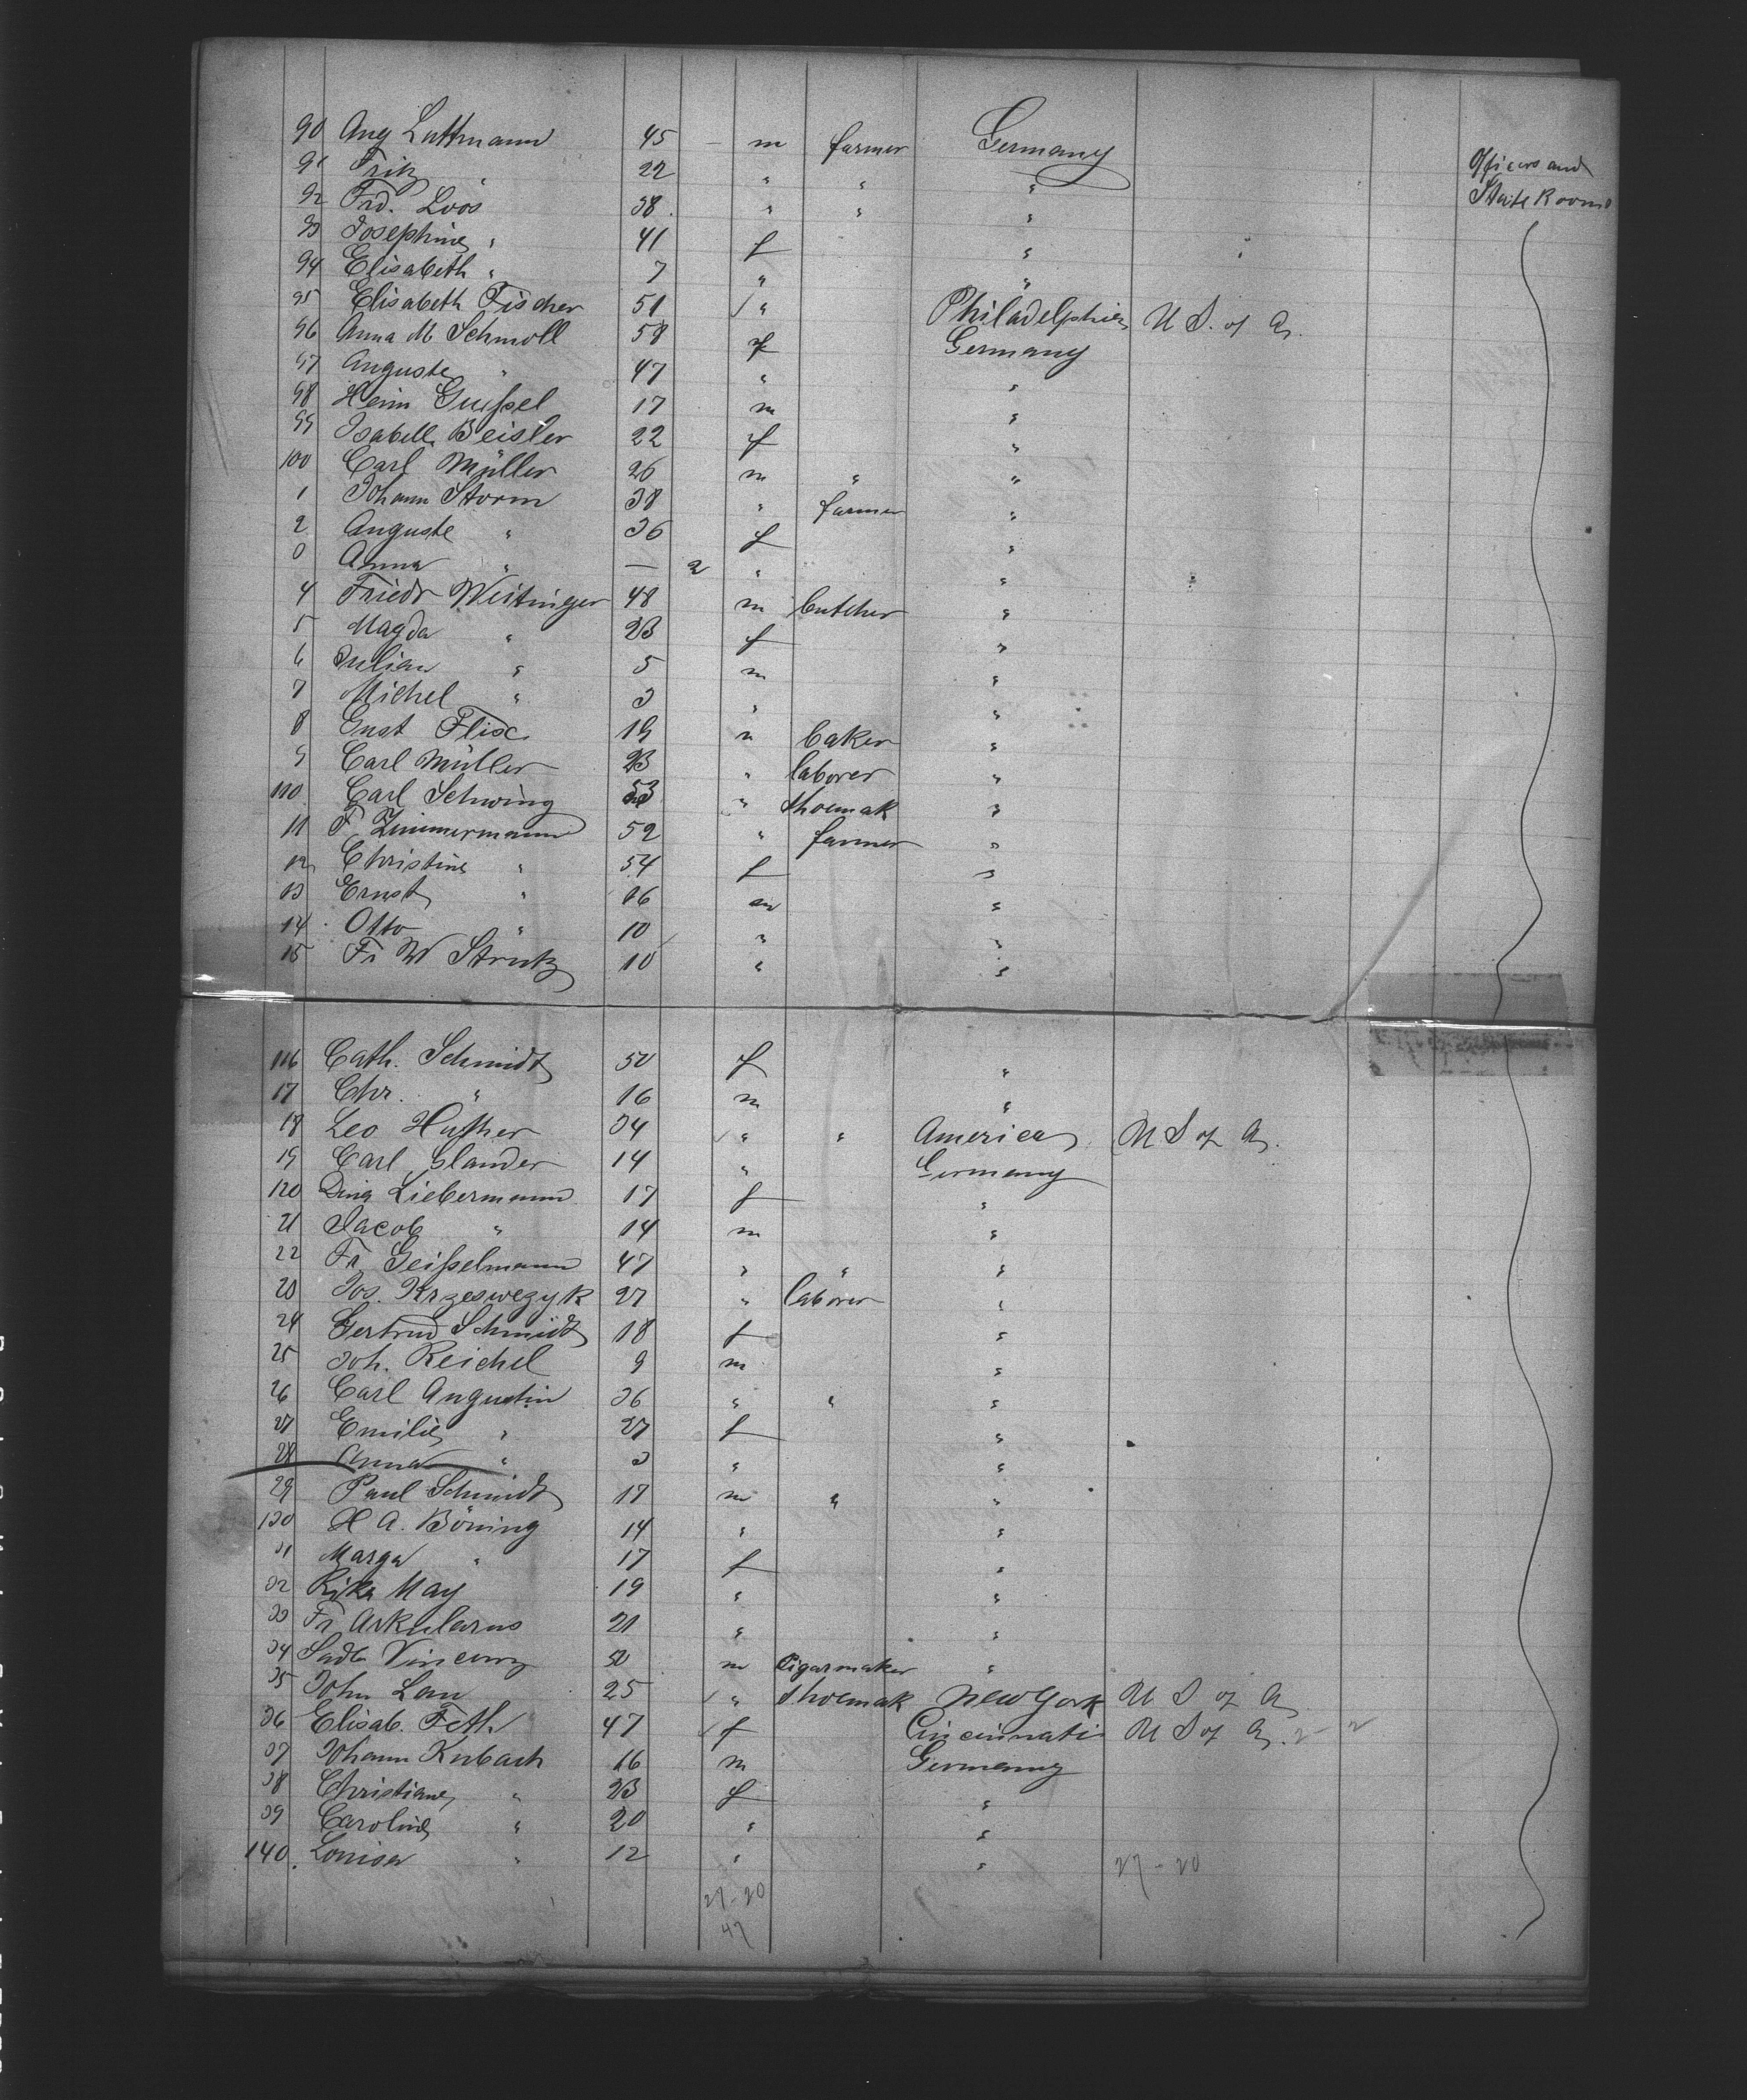 90 Aug Luttmann 45 – m farmer Germany
Officers and
State Rooms
91 Fritz " 22 " " "
92 Frd. Loos 38 " " "
93 Josephine " 41 f "
94 Elisabeth " 7 " "
95 Elisabeth Fischer 51 / " Philadelphia U S. of A.
96 Anna M Schmoll 58 f Germany
97 Auguste " 47 " "
98 Heinr 17 m "
99 Isabella Beisler 22 f "
100 Carl Müller 26 m " "
1 Johann Storm 38 " farmer "
2 Auguste " 36 f "
3 Anna " — 2 " "
4 Friedr Weitinger 48 m butcher "
5 Magda " 23 f "
6 Julian " 5 m "
7 Michel " 3 " "
8 Gust 19 m baker "
9 Carl Müller 23 " laborer "
110 Carl Schwing 53 " shoemak "
11 F. Zimmermann 52 " farmer "
12 Christine " 54 f "
13 Ernst " 16 m "
14 Otto " 10 " "
15 Fr W 10 " "
116 Cath. Schmidt 50 f "
17 Chr. " 16 m "
18 Leo 34 / " " America U S of A.
19 Carl 14 " Germany
120 Dina Liebermann 17 f "
21 Jacob " 14 m "
22 Fr. Geißelmann 47 " " "
23 Jos. Krzeswezyk 27 " laborer "
24 Gertrud Schmidt 18 f "
25 Joh. Reichel 9 m "
26 Carl Augustin 36 " " "
27 Emilie " 27 f "
28 Anna " 3 " "
29 Paul Schmidt 17 m " "
130 H A. Böning 14 " "
31 Marga " 17 f "
32 Rika May 19 " "
33 Fr Arkularius 21 " "
34 50 m Cigarmaker "
35 John Lau 25 / " Shoemak New York U S of A
36 Elisab. Feth 47 / f Cincinnati U S of A. 2 - 2
37 Johann Kubach 16 m Germany
38 Christiane " 23 f "
39 Caroline " 20 " "
140. Louisa " 12 " " 27 - 20
27-20
47